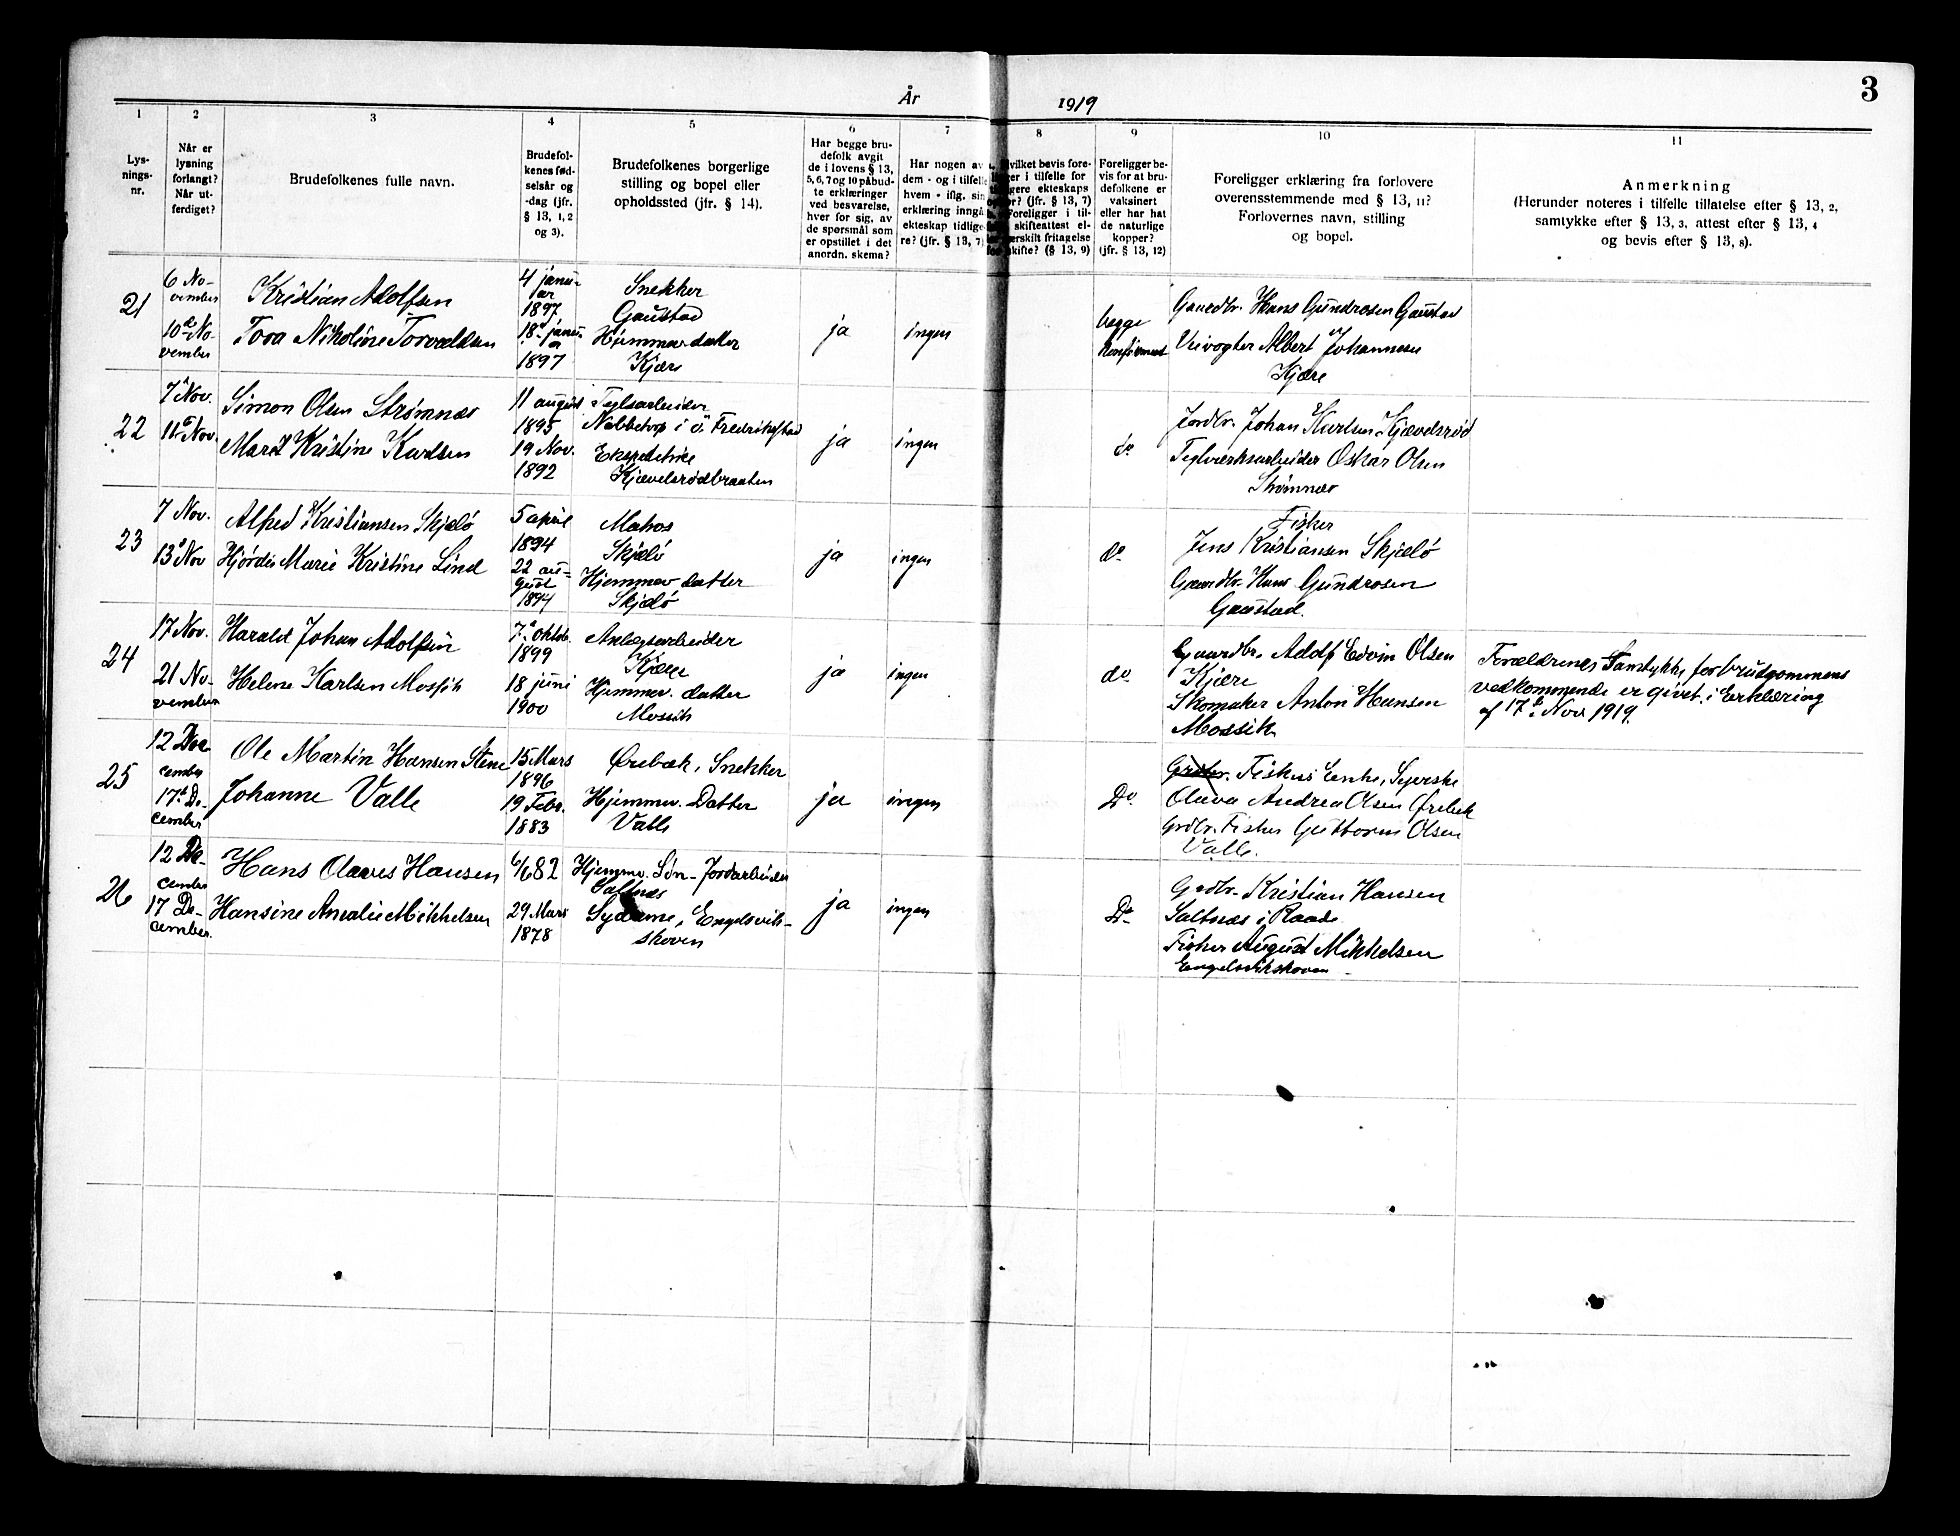 År 1919
3
1
2
3
4
5
6
7
8
9
10
11
Lys-
nings-
nr.
Når er
lysning
forlangt?
Når ut-
ferdiget?
Brudefolkenes fulle navn.
Brudefol-
kenes fød-
selsår og
-dag (jfr.
§ 13, 1, 2
og 3).
Brudefolkenes borgerlige
stilling og bopel eller
opholdssted (jfr. § 14).
Har begge bru-
defolk avgit
de i lovens § 13,
5, 6, 7 og 10 påbud-
te erklæringer
ved besvarelse,
hver for sig, av
de spørsmål som
er opstillet i det
anordn. skema?
Har nogen av
dem - og i tilfelle
hvem - iflg. sin
erklæring inngå
ekteskap tidlige-
re? (jfr. § 13, 7)
vilket bevis fore-
er i tilfelle for
gere ekteskaps
r? (jfr. § 13, 7)
Foreligger i til-
skifteattest el-
erskilt fritagelse
skifte? (§ 13, 9)
Foreligger be-
vis for at bru-
defolkene er
vaksinert
eller har hat
de naturlige
kopper?
(jfr. § 13, 12)
Foreligger erklæring fra forlovere
overensstemmende med § 13, 11?
Forlovernes navn, stilling
og bopel.
Anmerkning
(Herunder noteres i tilfelle tillatelse efter § 13, 2,
samtykke efter § 13, 3, attest efter § 13, 4
og bevis efter § 13, 8).
21
6 No-
vember
10de No-
vember
Kristian Adolfsen
Tora Nikoline Torvaldsen
4 janu-
ar
1897
18de janu-
ar
1897
Snekker
Gaustad
Hjemmev. datter
Kjære
ja
ingen
begge
konfirmert
Gaardbr. Hans Gundrosen Gaustad
Veivogter Albert Johannesen
Kjære
22
7de Nov.
11te Nov.
Simon Olsen Strømnæs
Marit Kristine Karlsen
11 august
1895
19 Nov.
1892
Teglarbeider
Nabbetorp i Ö. Fredrikstad
Kjævelsrødbraaten
ja
ingen
do
Jordbr. Johan Karlsen Kjævelsrød
Teglverksarbeider Oskar Olsen
Strømnæs
23
7 Nov.
13de Nov
Alfred Kristiansen Skjælø
Hjørdis Marie Kristine Lind
5 april
1894
22 au-
gust
1894
Matros
Skjælø
Hjemmev datter
Skjælø
ja
ingen
do
Fisker
Jens Kristiansen Skjælø
Gaardbr. Hans Gundrosen
Gaustad.
24
17 Nov.
21 No-
vember
Harald Johan Adolfsen
Helene Karlsen Mossik
7de oktob.
1899
18 juni
1900
Anlægsarbeider
Kjære
Hjemmev. datter
Mossik
ja
ingen
do
Gaardbr. Adolf Edvin Olsen
Kjære
Skomaker Anton Hansen
Mossik
Forældrenes Samtykke for brudgommens
vedkommende er givet i Erklæring
af 17de Nov 1919.
25
12 De
cember
17de De-
cember
Ole Martin Hansen Stene
Johanne Valle
15 Mars
1896
19 Febr.
1883
Ørebæk, Snekker
Hjemmev. Datter
Valle
ja
ingen
Do
Grdbr. Fiskers Enke, Syerske
Olava Andrea Olsen Ørebek
Grdbr. Fisker Guttorm Olsen
Valle.
26
12 De-
cember
17 De-
cember.
Hans Olaves Hansen
Hansine Amalie Mikkelsen
6/6 82
29 Mars
1878
Hjemmev. Søn - Jordarbeider
Saltnæs
Sydame, Engelsvik-
skoven
ja
ingen
Do
Grdbr. Kristian Hansen
Saltnæs i Raade.
Fisker August Mikkelsen
Engelsvikskoven